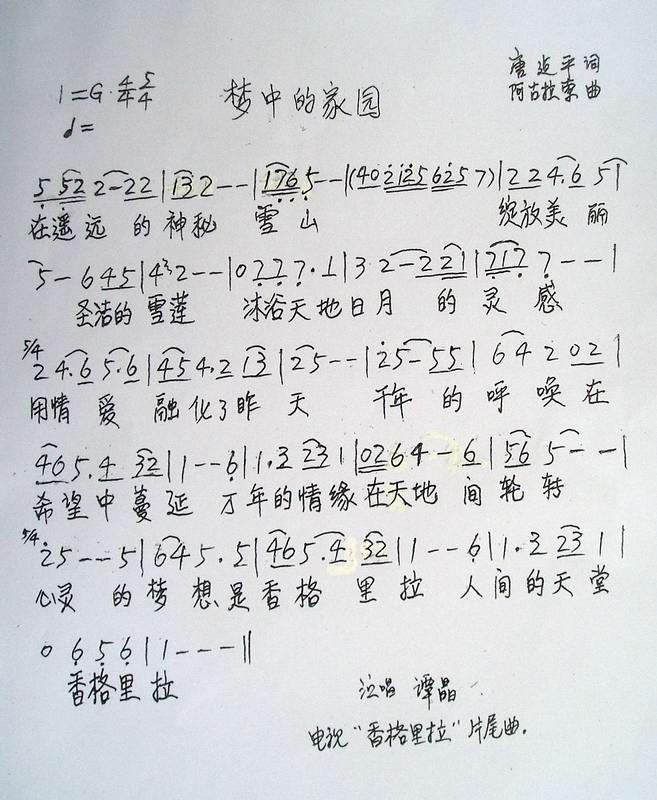 1=G 4/4 5/4 梦中的家园 唐 平 词
♩= 阿古拉泰 曲
5 52 2-22|132--|1765--|(402125 6257)|224.6 51|
在遥远 的神秘 雪山 绽放美丽
5-645|4³2--|0777.1|32-221|2177--|
圣洁的雪莲 沐浴天地日月 的灵感
5/4 24.65.6|454.213|25--|25-55|64202|
用情爱 融化了昨天 千年 的呼唤在
465.432|1--6|1.3231|0264-6|565--|
希望中蔓延 万年的情缘在天地 间轮转
5/4 25--5|645.5|465.432|1--6|1.3231|
心灵 的梦想是香格里拉 人间的天堂
0656|1---‖
香格里拉
演唱 谭晶
电视“香格里拉”片尾曲.